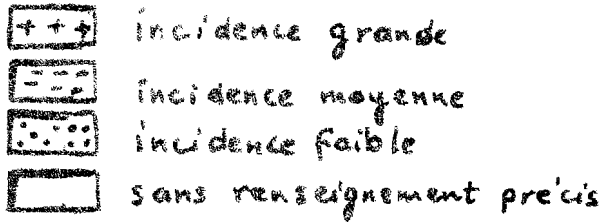 incidence grande
incidence moyenne
incidence faible
sans renseignement précis